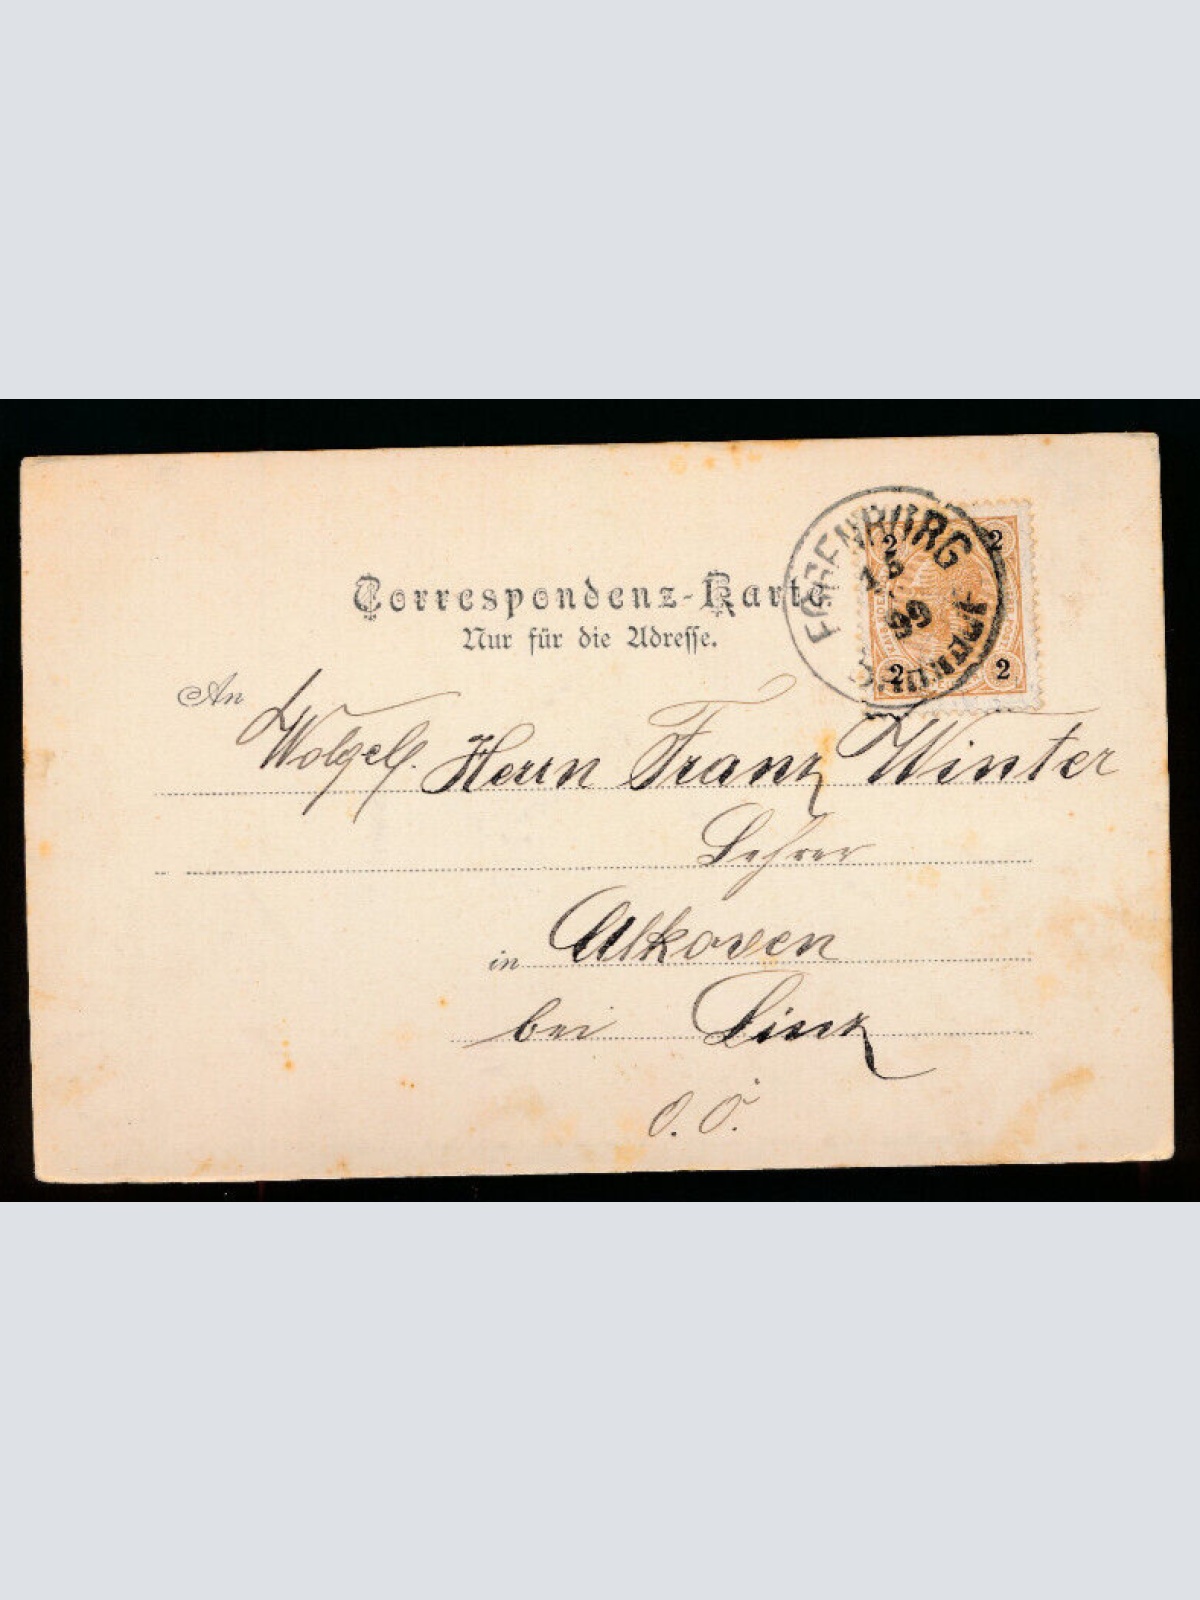 Correspondenz-Karte
Nur für die Adresse.
EGGENBURG
15
99
2 2
2 2
An
Wolgeb. Herrn Franz Winter
Lehrer
in Alkoven
bei Linz
O. Ö.